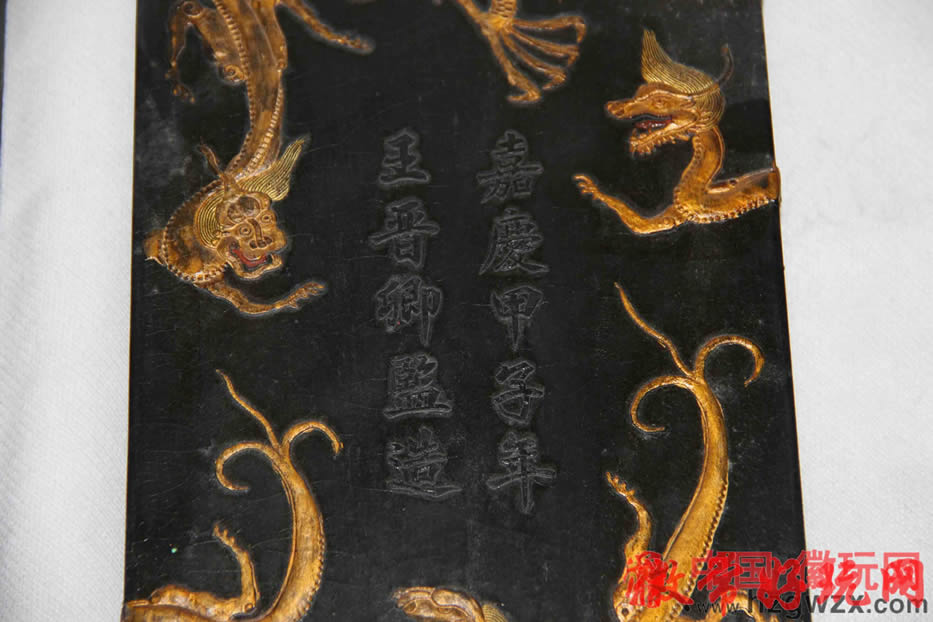 嘉慶甲子年
王晋卿監造
中国徽玩网
www.hzgwzx.com